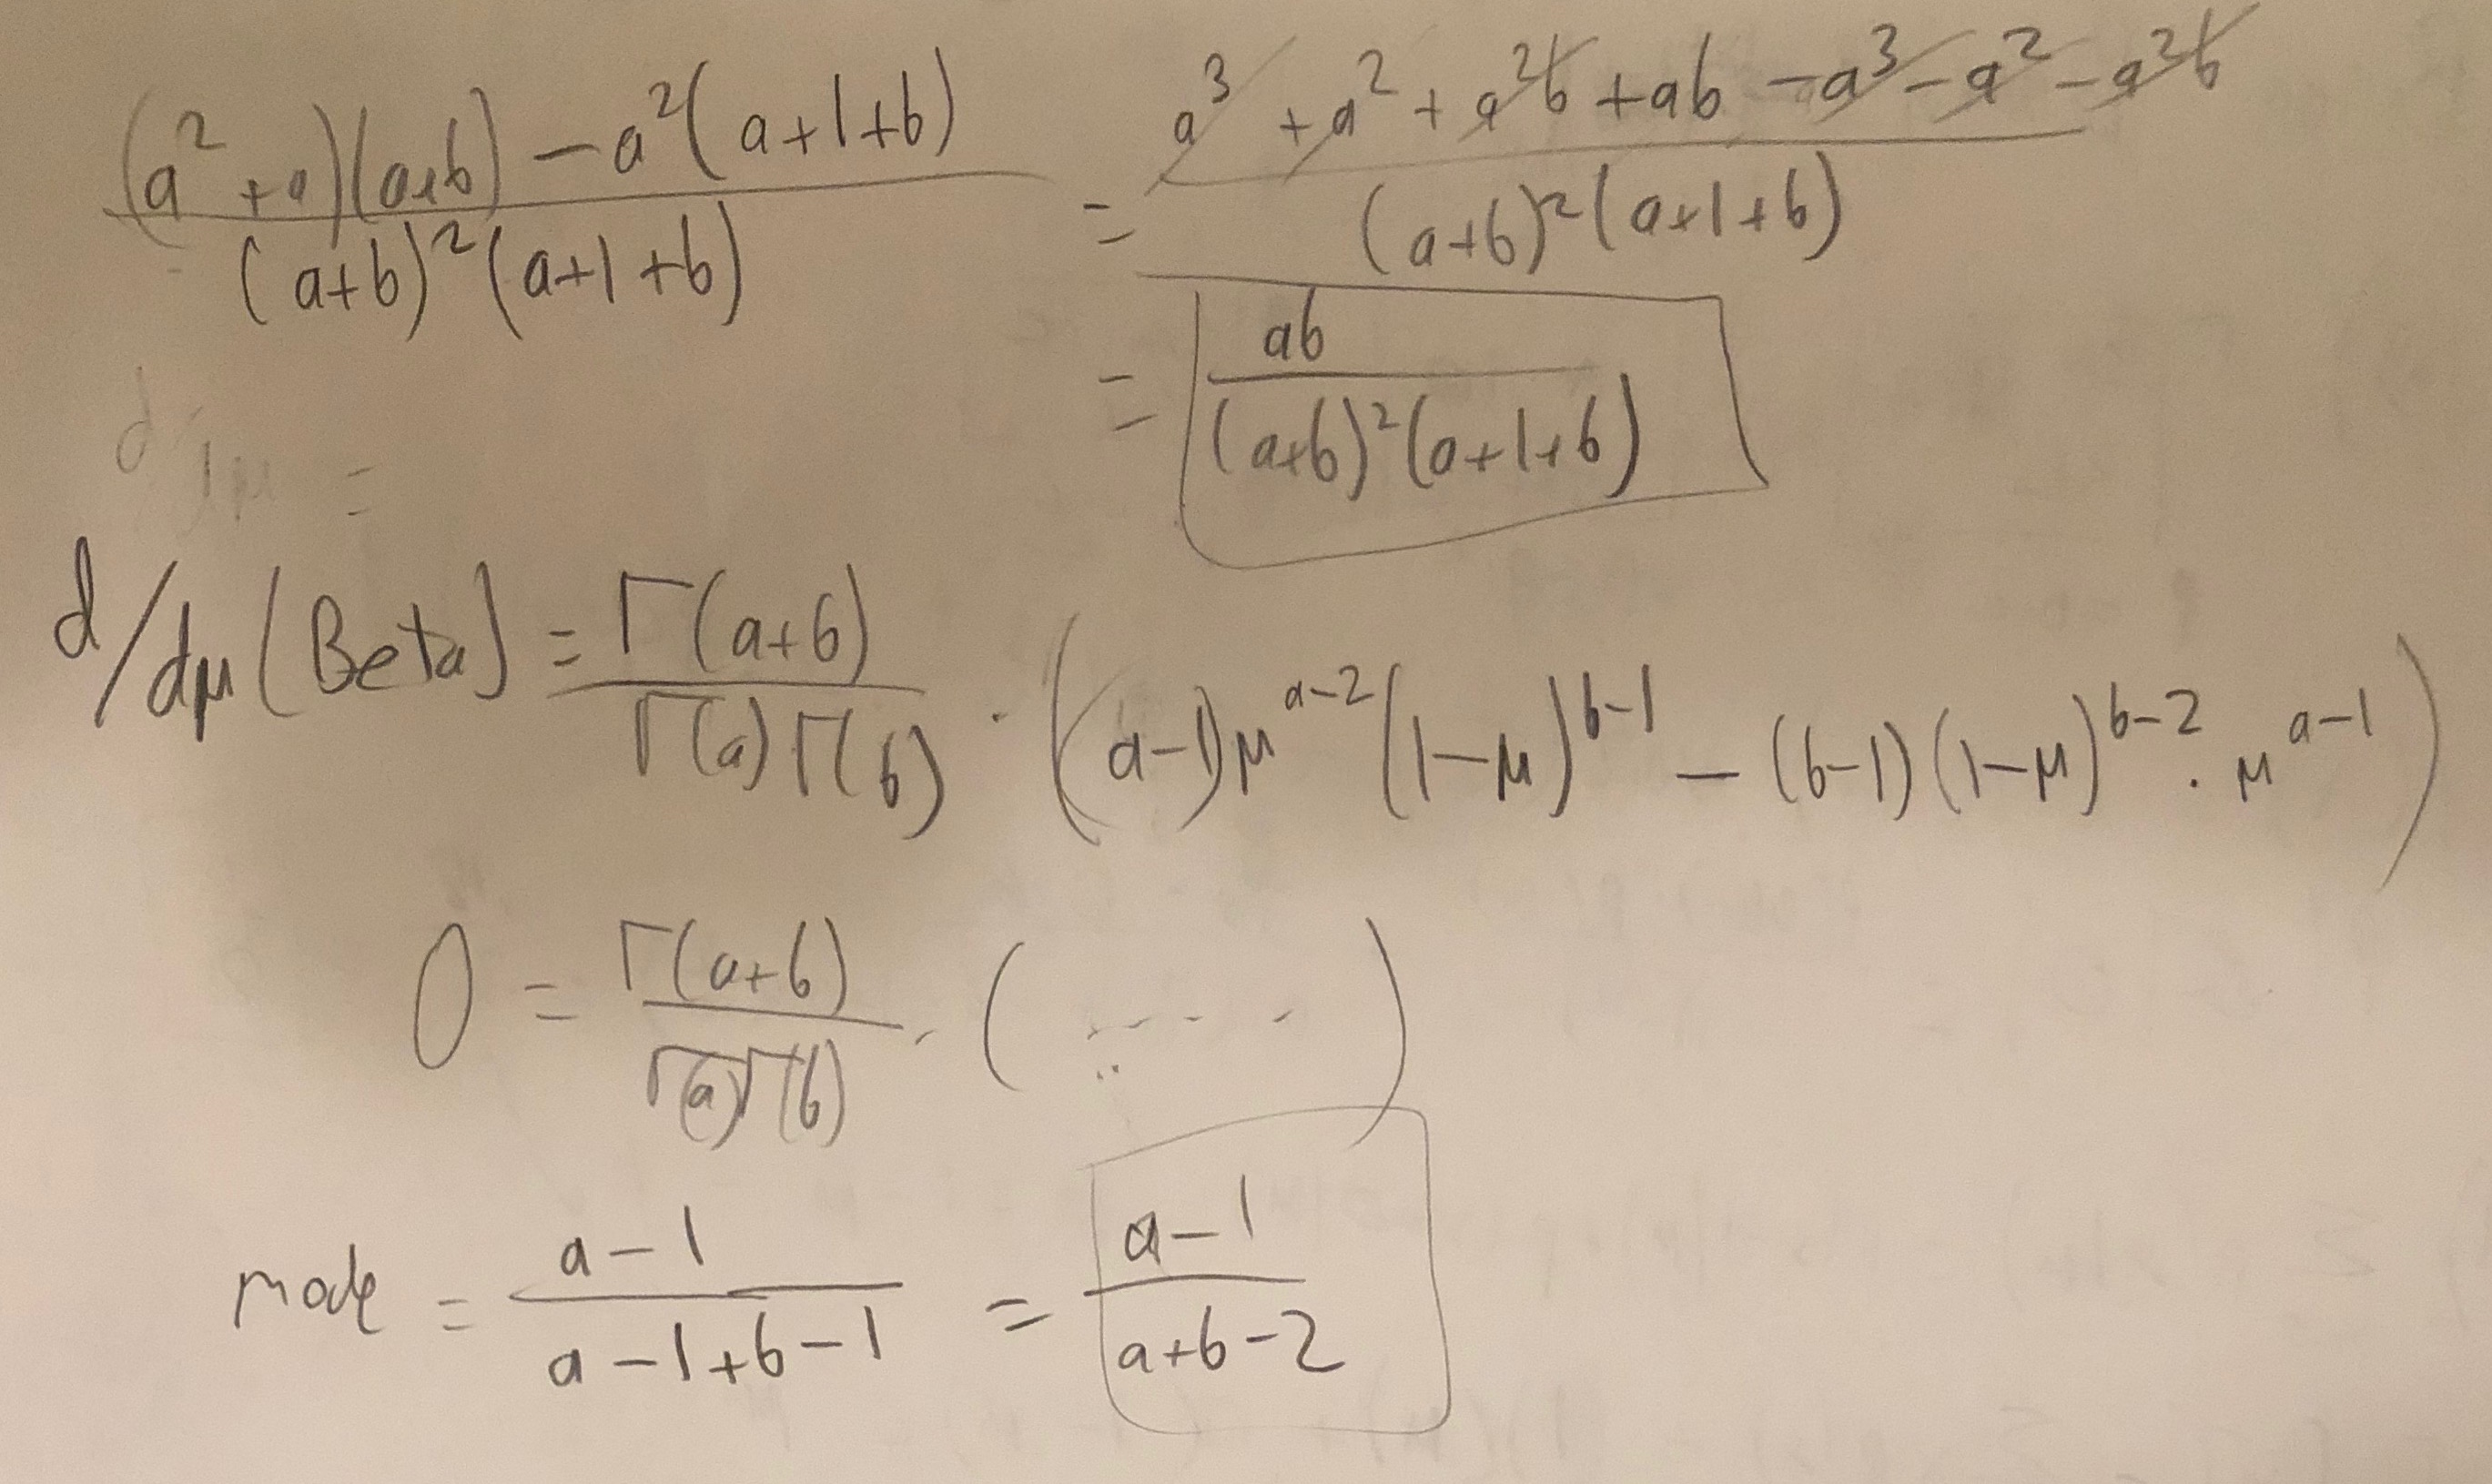 (a² + a)(a+b) − a²(a+1+b) / (a+b)²(a+1+b) = a³ + a² + a²b + ab − a³ − a² − a²b / (a+b)²(a+1+b)
= ab / (a+b)²(a+1+b)
d/dμ =
d/dμ (Beta) = Γ(a+b) / Γ(a)Γ(b) · ((a−1)μ^{a−2}(1−μ)^{b−1} − (b−1)(1−μ)^{b−2} · μ^{a−1})
0 = Γ(a+b) / Γ(a)Γ(b) · (.....)
mode = a−1 / a−1+b−1 = a−1 / a+b−2